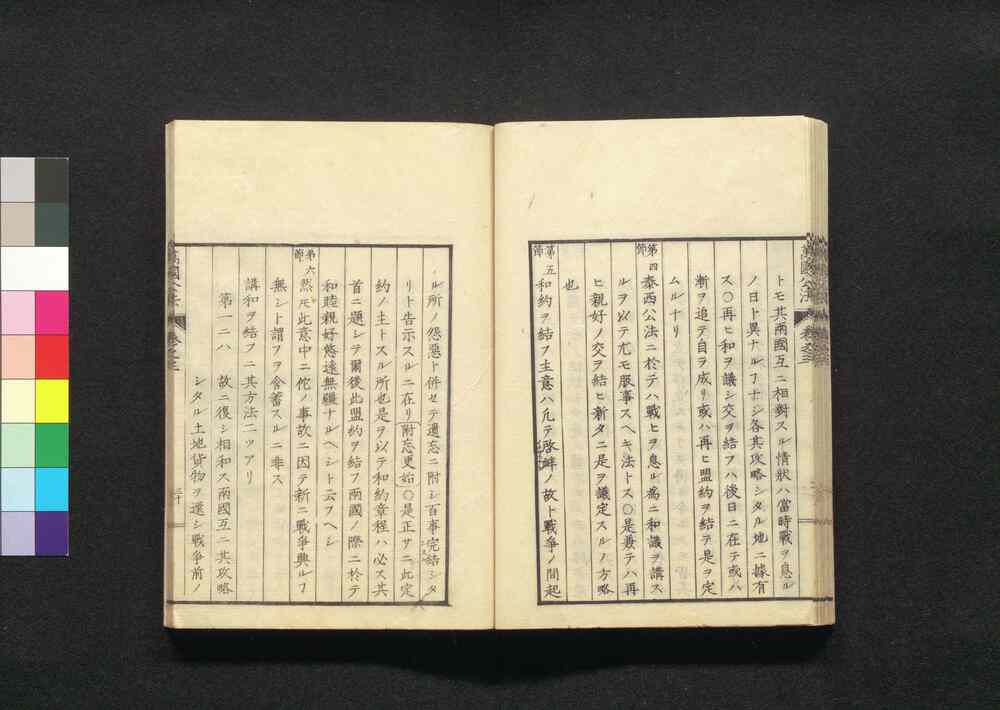 萬國公法 卷之三
トモ其兩國互ニ相對スル情狀ハ當時戰ヲ息ル
ノ日ト異ナルヿナシ各其攻略シタル地ニ據有
ス〇再ヒ和ヲ議シ交ヲ結フハ後日ニ在テ或ハ
漸ヲ追テ自ラ成リ或ハ再ヒ盟約ヲ結テ是ヲ定
ムルナリ
第四節 泰西公法ニ於テハ戰ヒヲ息ル爲ニ和議ヲ講ス
ルヲ以テ尤モ服事スヘキ法トス〇是兼テハ再
ヒ親好ノ交ヲ結ヒ新タニ是ヲ議定スルノ方略
也
第五節 和約ヲ結フ主意ハ凡テ啓釁ノ故ト戰爭ノ間起
ル所ノ怨惡ト併セテ遺忘ニ附シ百事完結シタ
リト告示スルニ在リ附忘更始〇是正サニ此定
約ノ主トスル所也是ヲ以テ和約章程ハ必ス其
首ニ題シテ爾後此盟約ヲ結フ兩國ノ際ニ於テ
和睦親好悠遠無疆ナルヘシト云フヘシ
第六節 然𪜈此意中ニ佗ノ事故ニ因テ新ニ戰爭興ルヿ
無シト謂フヲ含蓄スルニ非ス
講和ヲ結フニ其方法二ツアリ
第一ニハ 故ニ復シ相和ス兩國互ニ其攻略
シタル土地貨物ヲ還シ戰爭前ノ
萬國公法 卷之三